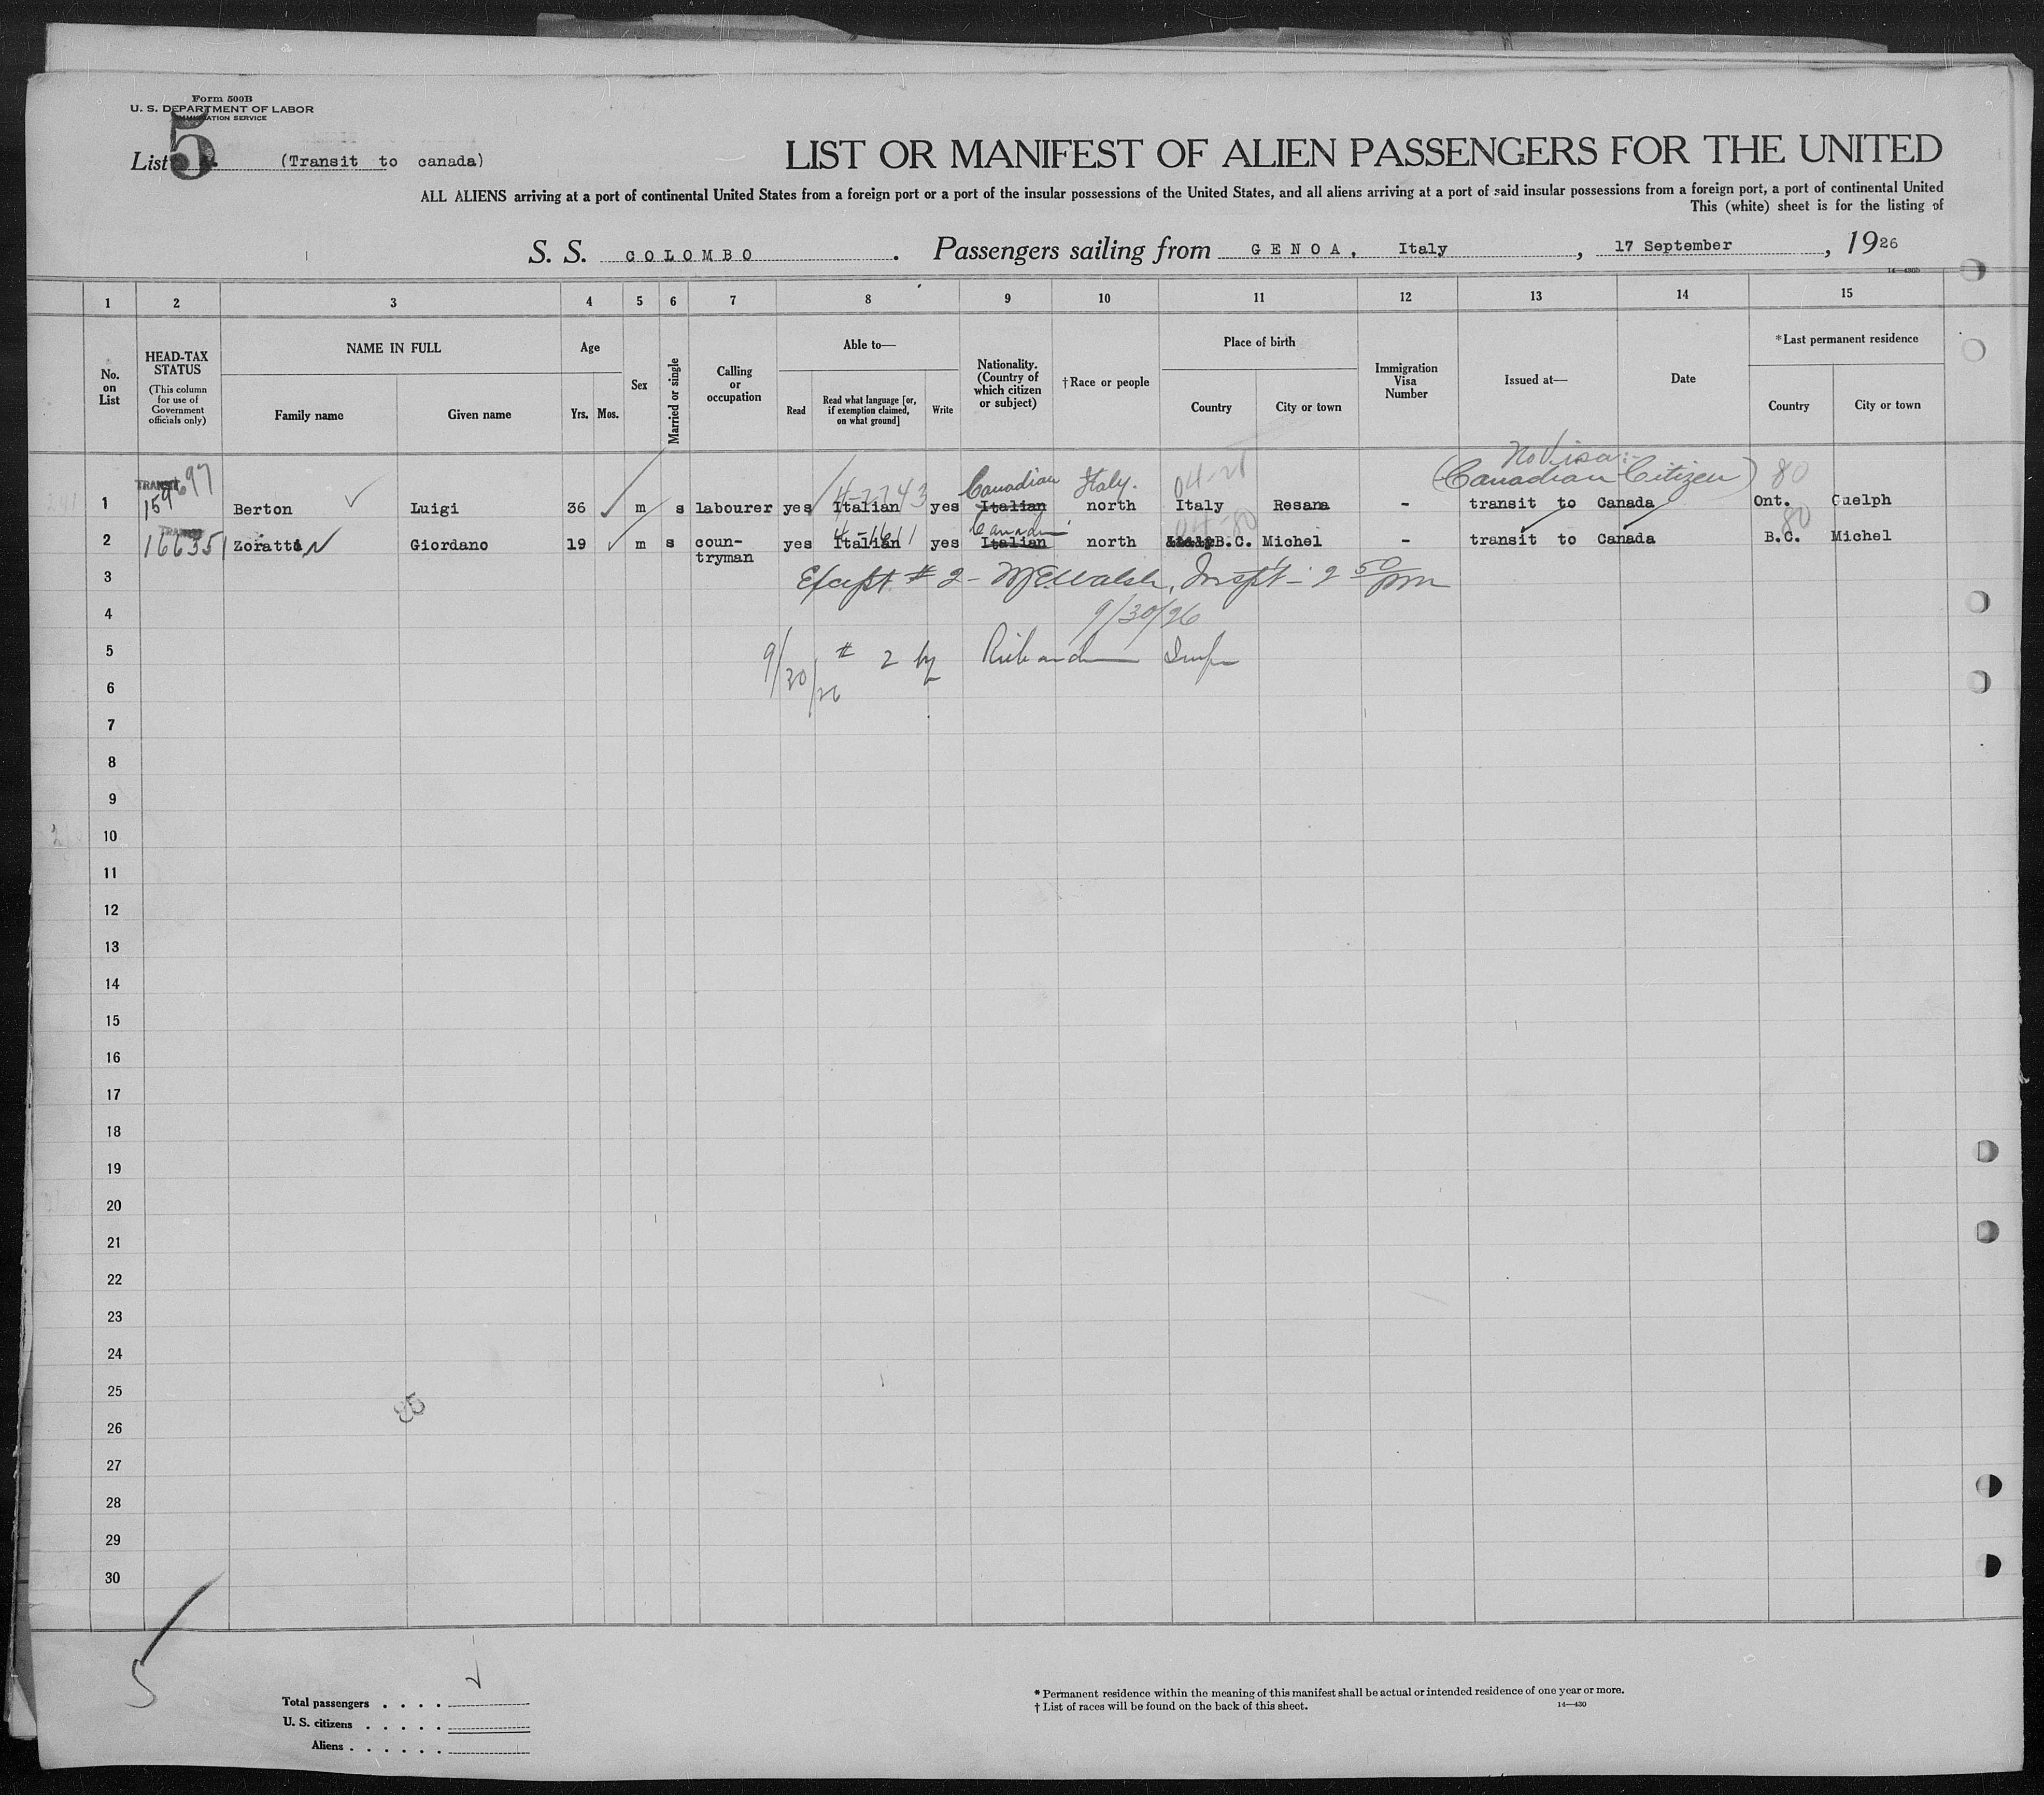 Form 500B
U. S. DEPARTMENT OF LABOR
IMMIGRATION SERVICE
List 5 (Transit to canada)
LIST OR MANIFEST OF ALIEN PASSENGERS FOR THE UNITED
ALL ALIENS arriving at a port of continental United States from a foreign port or a port of the insular possessions of the United States, and all aliens arriving at a port of said insular possessions from a foreign port, a port of continental United
This (white) sheet is for the listing of
S. S. COLOMBO. Passengers sailing from GENOA, Italy, 17 September, 1926
14—430b
1 2 3 4 5 6 7 8 9 10 11 12 13 14 15
No. on List
HEAD-TAX STATUS
(This column for use of Government officials only)
NAME IN FULL
Family name Given name
Age
Yrs. Mos.
Sex
Married or single
Calling or occupation
Able to—
Read
Read what language [or, if exemption claimed, on what ground]
Write
Nationality. (Country of which citizen or subject)
†Race or people
Place of birth
Country City or town
Immigration Visa Number
Issued at—
Date
*Last permanent residence
Country City or town
No Visa:-
(Canadian Citizen) 80
TRANSIT 4-2243 Canadian Italy. 04-21
1 159697 Berton Luigi 36 m s labourer yes Italian yes Italian north Italy Resana - transit to Canada Ont. Guelph
TRANSIT 4-1611 80
2 166351 Zoratti N Giordano 19 m s coun- yes Italian yes Italian north B.C. Michel - transit to Canada B.C. Michel
tryman
3 Except # 2 - McWalsh, Inspt - 2 50 pm
4 9/30/26
5 9/30/26 # 2 by Richard
6
7
8
9
10
11
12
13
14
15
16
17
18
19
20
21
22
23
24
25
85
26
27
28
29
30
5
Total passengers . . . .
U. S. citizens . . . . .
Aliens . . . . . .
* Permanent residence within the meaning of this manifest shall be actual or intended residence of one year or more.
† List of races will be found on the back of this sheet.
14—430